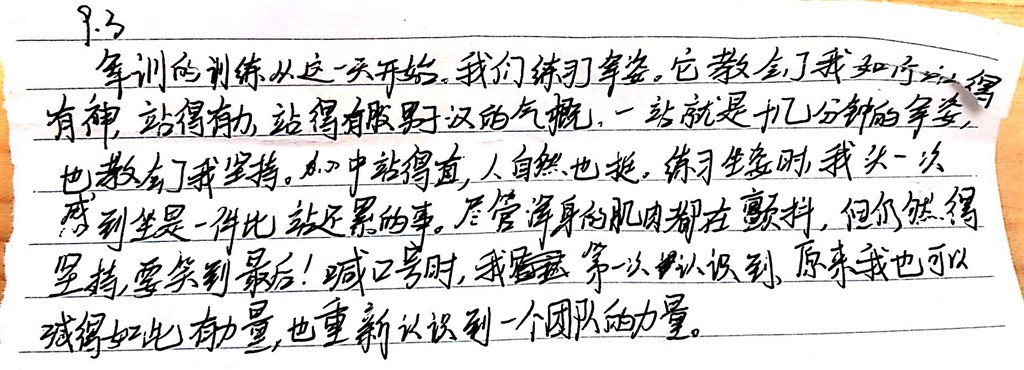 9.3
军训的训练从这一天开始。我们练习军姿。它教会了我如何站得
有神,站得有力,站得有股男子汉的气概。一站就是十几分钟的军姿,
也教会了我坚持。心中站得直,人自然也挺。练习坐姿时,我头一次
感到坐是一件比站还累的事。尽管浑身的肌肉都在颤抖,但仍然得
坚持,要笑到最后!喊口号时,我第一次认识到,原来我也可以
喊得如此有力量,也重新认识到一个团队的力量。